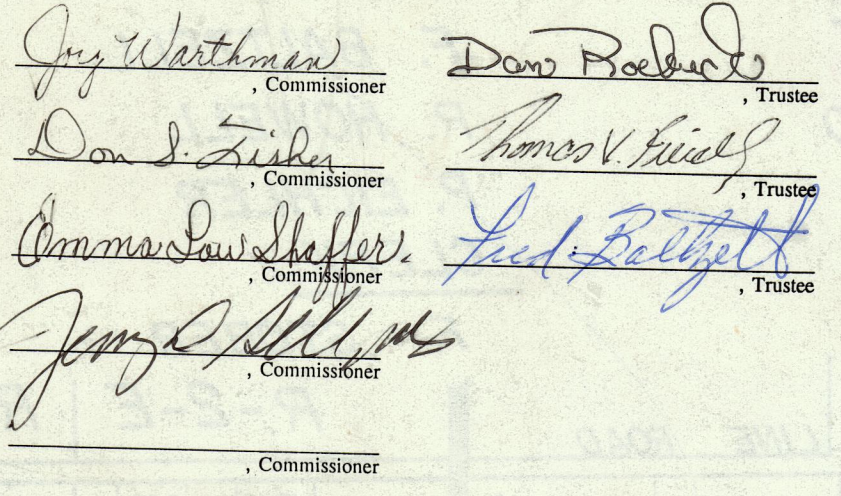 Joy Warthman
, Commissioner
Don S. Fisher
, Commissioner
Emma Lou Shaffer
, Commissioner
Jerry D
, Commissioner
, Commissioner
Dan Roebuck
, Trustee
Thomas V.
, Trustee
Fred Baltzell
, Trustee
R-2-E
LINE ROAD